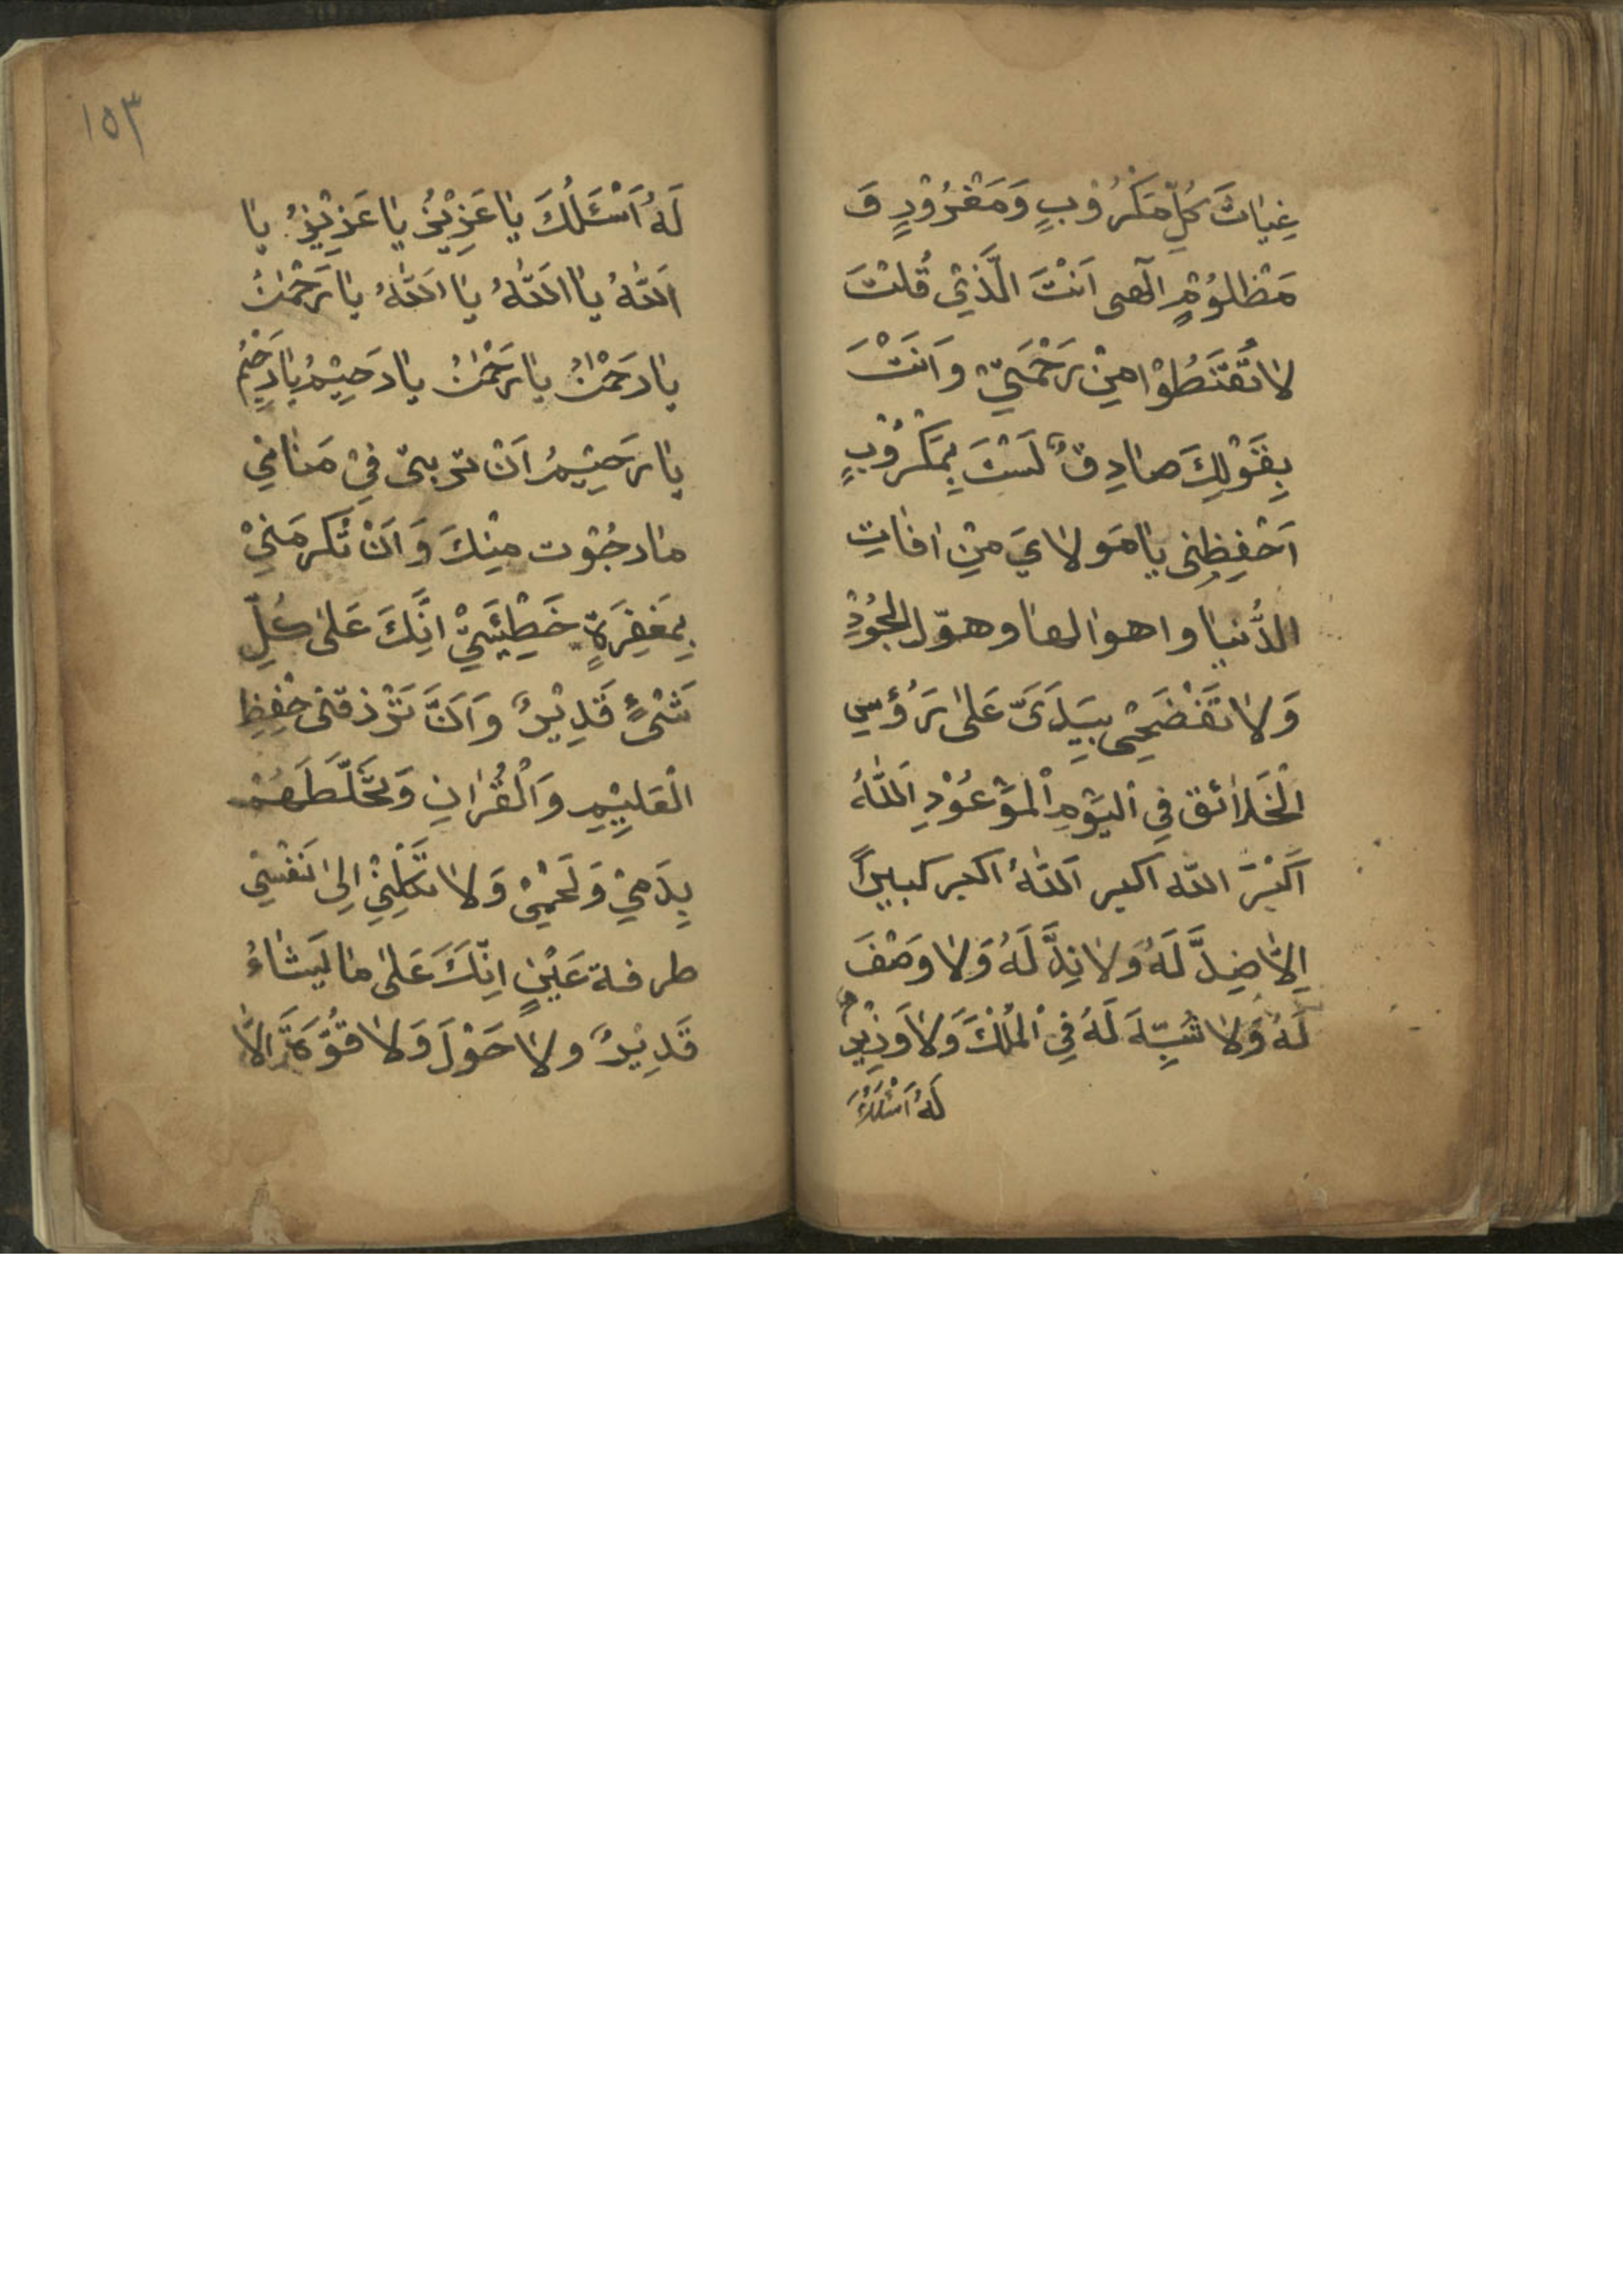 غِيٰاثَ كُلِّ مَكْرُوْبٍ وَمَغْرُوْدٍ وَ
مَظْلُوْمٍ الٓهى اَنْتَ الَّذِيْ قُلْتَ
لاٰ تَقْنَطُوْا مِنْ رَحْمَتِيْ وَاَنْتَ
بِقَوْلِكَ صٰادِقٌ لَسْتَ بِمَكْرُوْبٍ
اَحْفِظِنِى يٰا مَولاٰيَ مِنْ اٰفٰاتِ
الدُّنيٰا و اهوالها وهوّل الحُوْدِ
وَلاٰ تَفْضَحْنِى بِيَدَىَّ عَلىٰ رَؤُسِ
الْخَلاٰئق فِي الْيَوْمِ الْمَوْعُوْدِ اَللّٰهُ
اَكْبَرَ اللّه اكبر اَللّٰهُ اكبر كبيراً
اِلاّٰ ضِدَّ لَهُ وَلاٰ نِدَّ لَهُ وَلاٰ وَصْفَ
لَهُ وَلاٰ شَبِّهَ لَهُ فِي الْمُلْكَ وَلاٰ وَزِيْرٌ
لَهُ اَسْئَلُكَ
١٥٣
لَهُ اَسْئَلُكَ يٰا عَزِيْزُ يٰا عَزِيْزُ يٰا
اَللّٰهُ يٰا اَللّٰهُ يٰا اَللّٰهُ يٰا رَحْمٰنُ
يٰا رَحْمٰنُ يٰا رَحْمٰنُ يٰا رَحِيْمُ يٰا رَحِيْمُ
يٰا رَحِيْمُ اَنْ تربنى فِيْ مَنٰامِي
مٰا رجُوْت مِنْكَ وَ اَنْ تُكرمَنِيْ
بِمَغفِرَةٍ خَطِيْئَتِيْ اِنَّكَ عَلىٰ كُلِّ
شَىْءٍ قَدِيْرٌ وَ اَنَّ تَرْزقنى حِفْظِ
الْعَلِيْمِ وَالْقُرٰانِ وَتُخَلِّطَهُمْ
بِدَمِيْ وَلَحْمِيْ وَلاٰ تَكِلْنِيْ اِلىٰ نَفْسِيْ
طرفة عَيْنٍ اِنَّكَ عَلىٰ مٰا يَشٰاءُ
قَدِيْرٌ ولاٰ حَوْلَ وَلاٰ قُوَّةَ اِلاّٰ